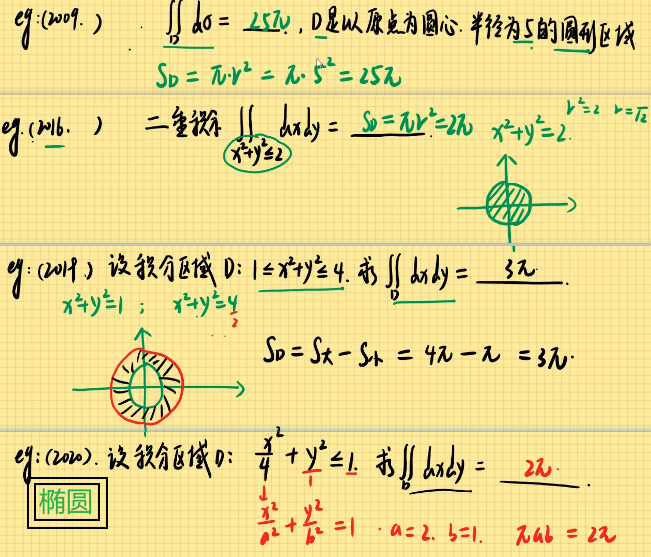 eg:(2009. ) ∬_D dσ = 25π. , D是以原点为圆心. 半径为5的圆形区域
S_D = π·r² = π·5² = 25π
eg.(2016. ) 二重积分 ∬_{x²+y²≤2} dxdy = S_D=πr²=2π. x²+y²=2. r²=2 r=√2
eg:(2018.) 设积分区域 D: 1≤x²+y²≤4. 求∬_D dxdy = 3π.
x²+y²=1 ; x²+y²=4
2
S_D = S_大 - S_小 = 4π - π = 3π.
eg:(2020). 设积分区域D: x²/4 + y²/1 ≤ 1. 求∬_D dxdy = 2π.
椭圆
x²/a² + y²/b² = 1 . a=2. b=1. πab = 2π